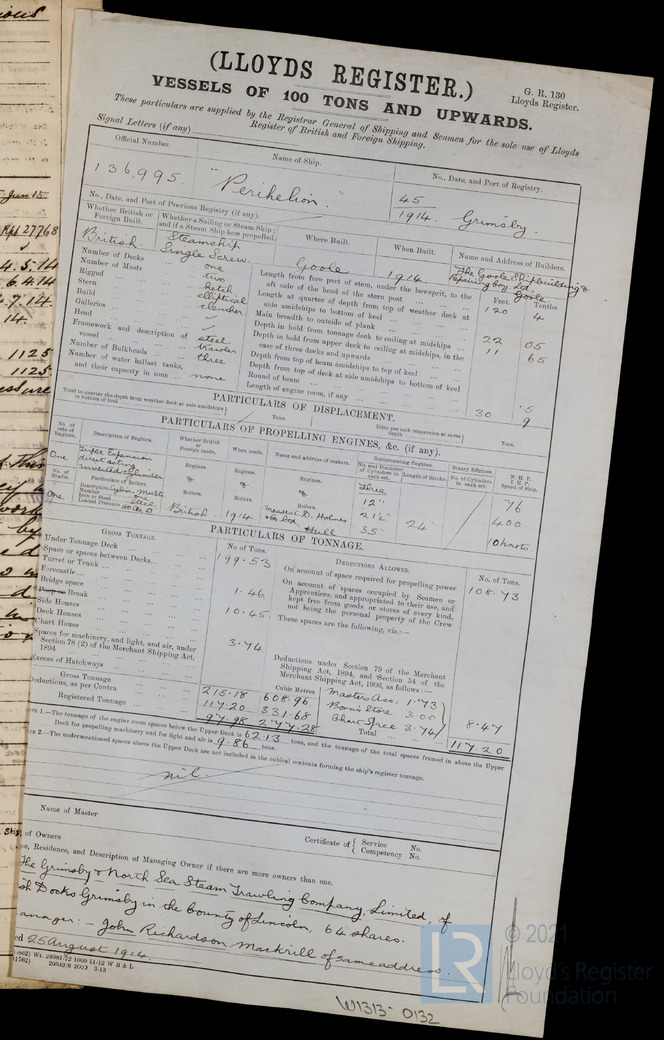 (LLOYDS REGISTER.)
G. R. 130
Lloyds Register.
VESSELS OF 100 TONS AND UPWARDS.
These particulars are supplied by the Registrar General of Shipping and Seamen for the sole use of Lloyds
Register of British and Foreign Shipping.
Signal Letters (if any)
Official Number.
Name of Ship.
No., Date, and Port of Registry.
136,995.
"Perihelion."
45
1914. Grimsby.
No., Date, and Port of Previous Registry (if any).
Whether British or Foreign Built.
Whether a Sailing or Steam Ship; and if a Steam Ship how propelled.
Where Built.
When Built.
Name and Address of Builders.
British.
Steamship
Single Screw.
Goole
1914.
The Goole Shipbuilding &
Repairing Coy. Ltd.
Goole
Number of Decks ... one
Number of Masts ... two
Rigged ... ketch
Stern ... elliptical
Build ... clencher
Galleries ...
Head ...
Framework and description of vessel ... steel trawler
Number of Bulkheads ... three
Number of water ballast tanks, and their capacity in tons ... none
Feet. Tenths
Length from fore part of stem, under the bowsprit, to the aft side of the head of the stern post 120 4
Length at quarter of depth from top of weather deck at side amidships to bottom of keel
Main breadth to outside of plank 22 05
Depth in hold from tonnage deck to ceiling at midships 11 65
Depth in hold from upper deck to ceiling at midships, in the case of three decks and upwards
Depth from top of beam amidships to top of keel
Depth from top of deck at side amidships to bottom of keel
Round of beam .5
Length of engine room, if any 30 9
PARTICULARS OF DISPLACEMENT.
Total to quarter the depth from weather deck at side amidships to bottom of keel
Tons.
Ditto per inch immersion at same depth
Tons.
PARTICULARS OF PROPELLING ENGINES, &c. (if any).
No. of sets of Engines.
Description of Engines.
Whether British or Foreign made.
When made.
Name and address of makers.
Reciprocating Engines.
No. and Diameter of Cylinders in each set.
Length of Stroke.
Rotary Engines.
No. of Cylinders in each set.
N.H.P.
I.H.P.
Speed of Ship.
One
Triple Expansion
direct acting
inverted cylinder
Engines.
Engines.
Engines.
Three
No. of Shafts.
Particulars of Boilers.
One
Number
Iron or Steel Steel
Loaded Pressure
Boilers.
Boilers.
Boilers.
British.
1914.
Messrs C. D. Holmes
& Co Ltd
Hull
12"
21½
35"
24"
76
400
10 knots
PARTICULARS OF TONNAGE.
GROSS TONNAGE.
No. of Tons.
DEDUCTIONS ALLOWED.
No. of Tons.
Under Tonnage Deck ... 199.53
Space or spaces between Decks...
Turret or Trunk ...
Forecastle...
Bridge space
Poop or Break ... 1.46
Side Houses
Deck Houses ... 10.45
Chart House
Spaces for machinery, and light, and air, under Section 78 (2) of the Merchant Shipping Act, 1894 3.74
Excess of Hatchways
On account of space required for propelling power 108.73
On account of spaces occupied by Seamen or Apprentices, and appropriated to their use, and kept free from goods or stores of every kind, not being the personal property of the Crew
These spaces are the following, viz.:—
Deductions under Section 79 of the Merchant Shipping Act, 1894, and Section 54 of the Merchant Shipping Act, 1906, as follows:—
Cubic Metres
Gross Tonnage 215.18 608.96
Deductions, as per Contra 117.20 331.68
Registered Tonnage 97.98 277.28
Masters Acc. 1.73
Bosn's Store 3.00
Chart Space 3.74
8.47
Total 117.20
NOTE 1.—The tonnage of the engine room spaces below the Upper Deck is 62.13 tons, and the tonnage of the total spaces framed in above the Upper
Deck for propelling machinery and for light and air is 9.86 tons.
NOTE 2.—The undermentioned spaces above the Upper Deck are not included in the cubical contents forming the ship's register tonnage.
nil.
Name of Master
Certificate of { Service No.
Competency No.
of Owners
Residence, and Description of Managing Owner if there are more owners than one.
The Grimsby & North Sea Steam Trawling Company, Limited, of
Docks Grimsby in the County of Lincoln, 64 shares.
anager:- John Richardson Mackrill of same address.
ed 25 August 1914.
W1313-0132
© 2021
Lloyd's Register
Foundation
LR